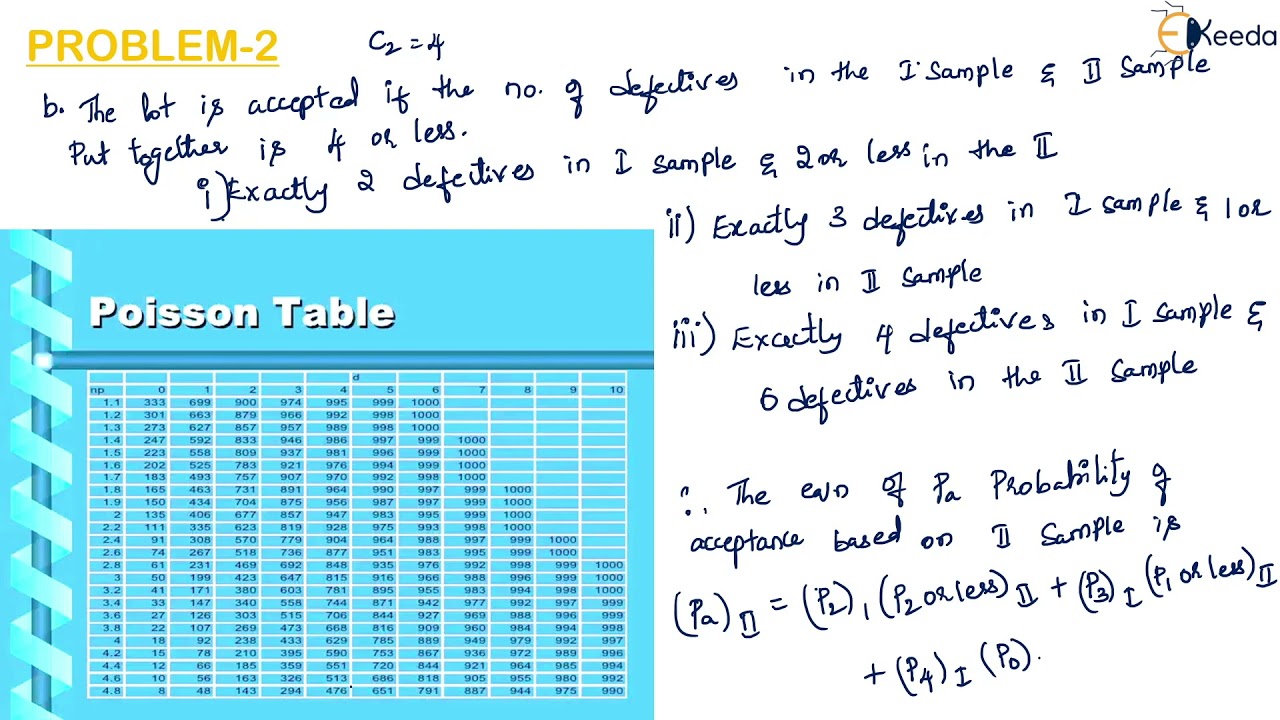 PROBLEM-2
C₂ = 4
EKeeda
b. The lot is accepted if the no. of defectives in the I sample & II sample
Put together is 4 or less.
i) Exactly 2 defectives in I sample & 2 or less in the II
ii) Exactly 3 defectives in I sample & 1 or
less in II sample
iii) Exactly 4 defectives in I sample &
0 defectives in the II sample
∴ The eqn of Pa Probability of
acceptance based on II sample is
(Pa) II = (P₂)₁ (P₂ or less) II + (P₃) I (P₁ or less) II
+ (P₄) I (P₀).
Poisson Table
d
np 0 1 2 3 4 5 6 7 8 9 10
1.1 333 699 900 974 995 999 1000
1.2 301 663 879 966 992 998 1000
1.3 273 627 857 957 989 998 1000
1.4 247 592 833 946 986 997 999 1000
1.5 223 558 809 937 981 996 999 1000
1.6 202 525 783 921 976 994 999 1000
1.7 183 493 757 907 970 992 998 1000
1.8 165 463 731 891 964 990 997 999 1000
1.9 150 434 704 875 956 987 997 999 1000
2 135 406 677 857 947 983 995 999 1000
2.2 111 335 623 819 928 975 993 998 1000
2.4 91 308 570 779 904 964 988 997 999 1000
2.6 74 267 518 736 877 951 983 995 999 1000
2.8 61 231 469 692 848 935 976 992 998 999 1000
3 50 199 423 647 815 916 966 988 996 999 1000
3.2 41 171 380 603 781 895 955 983 994 998 1000
3.4 33 147 340 558 744 871 942 977 992 997 999
3.6 27 126 303 515 706 844 927 969 988 996 999
3.8 22 107 269 473 668 816 909 960 984 994 998
4 18 92 238 433 629 785 889 949 979 992 997
4.2 15 78 210 395 590 753 867 936 972 989 996
4.4 12 66 185 359 551 720 844 921 964 985 994
4.6 10 56 163 326 513 686 818 905 955 980 992
4.8 8 48 143 294 476 651 791 887 944 975 990